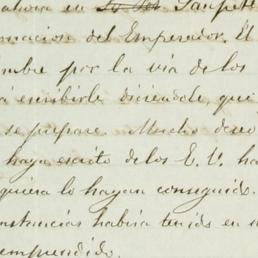 ahora en Sanpete
macion del Emperador. El
mbre por la via de los
á escribirle diciendole, que
se prepare. Mucho deseo
haya escrito de los E. U. ha
quiera lo hayan conseguido.
nstancias habia tenido en s
emprendido.